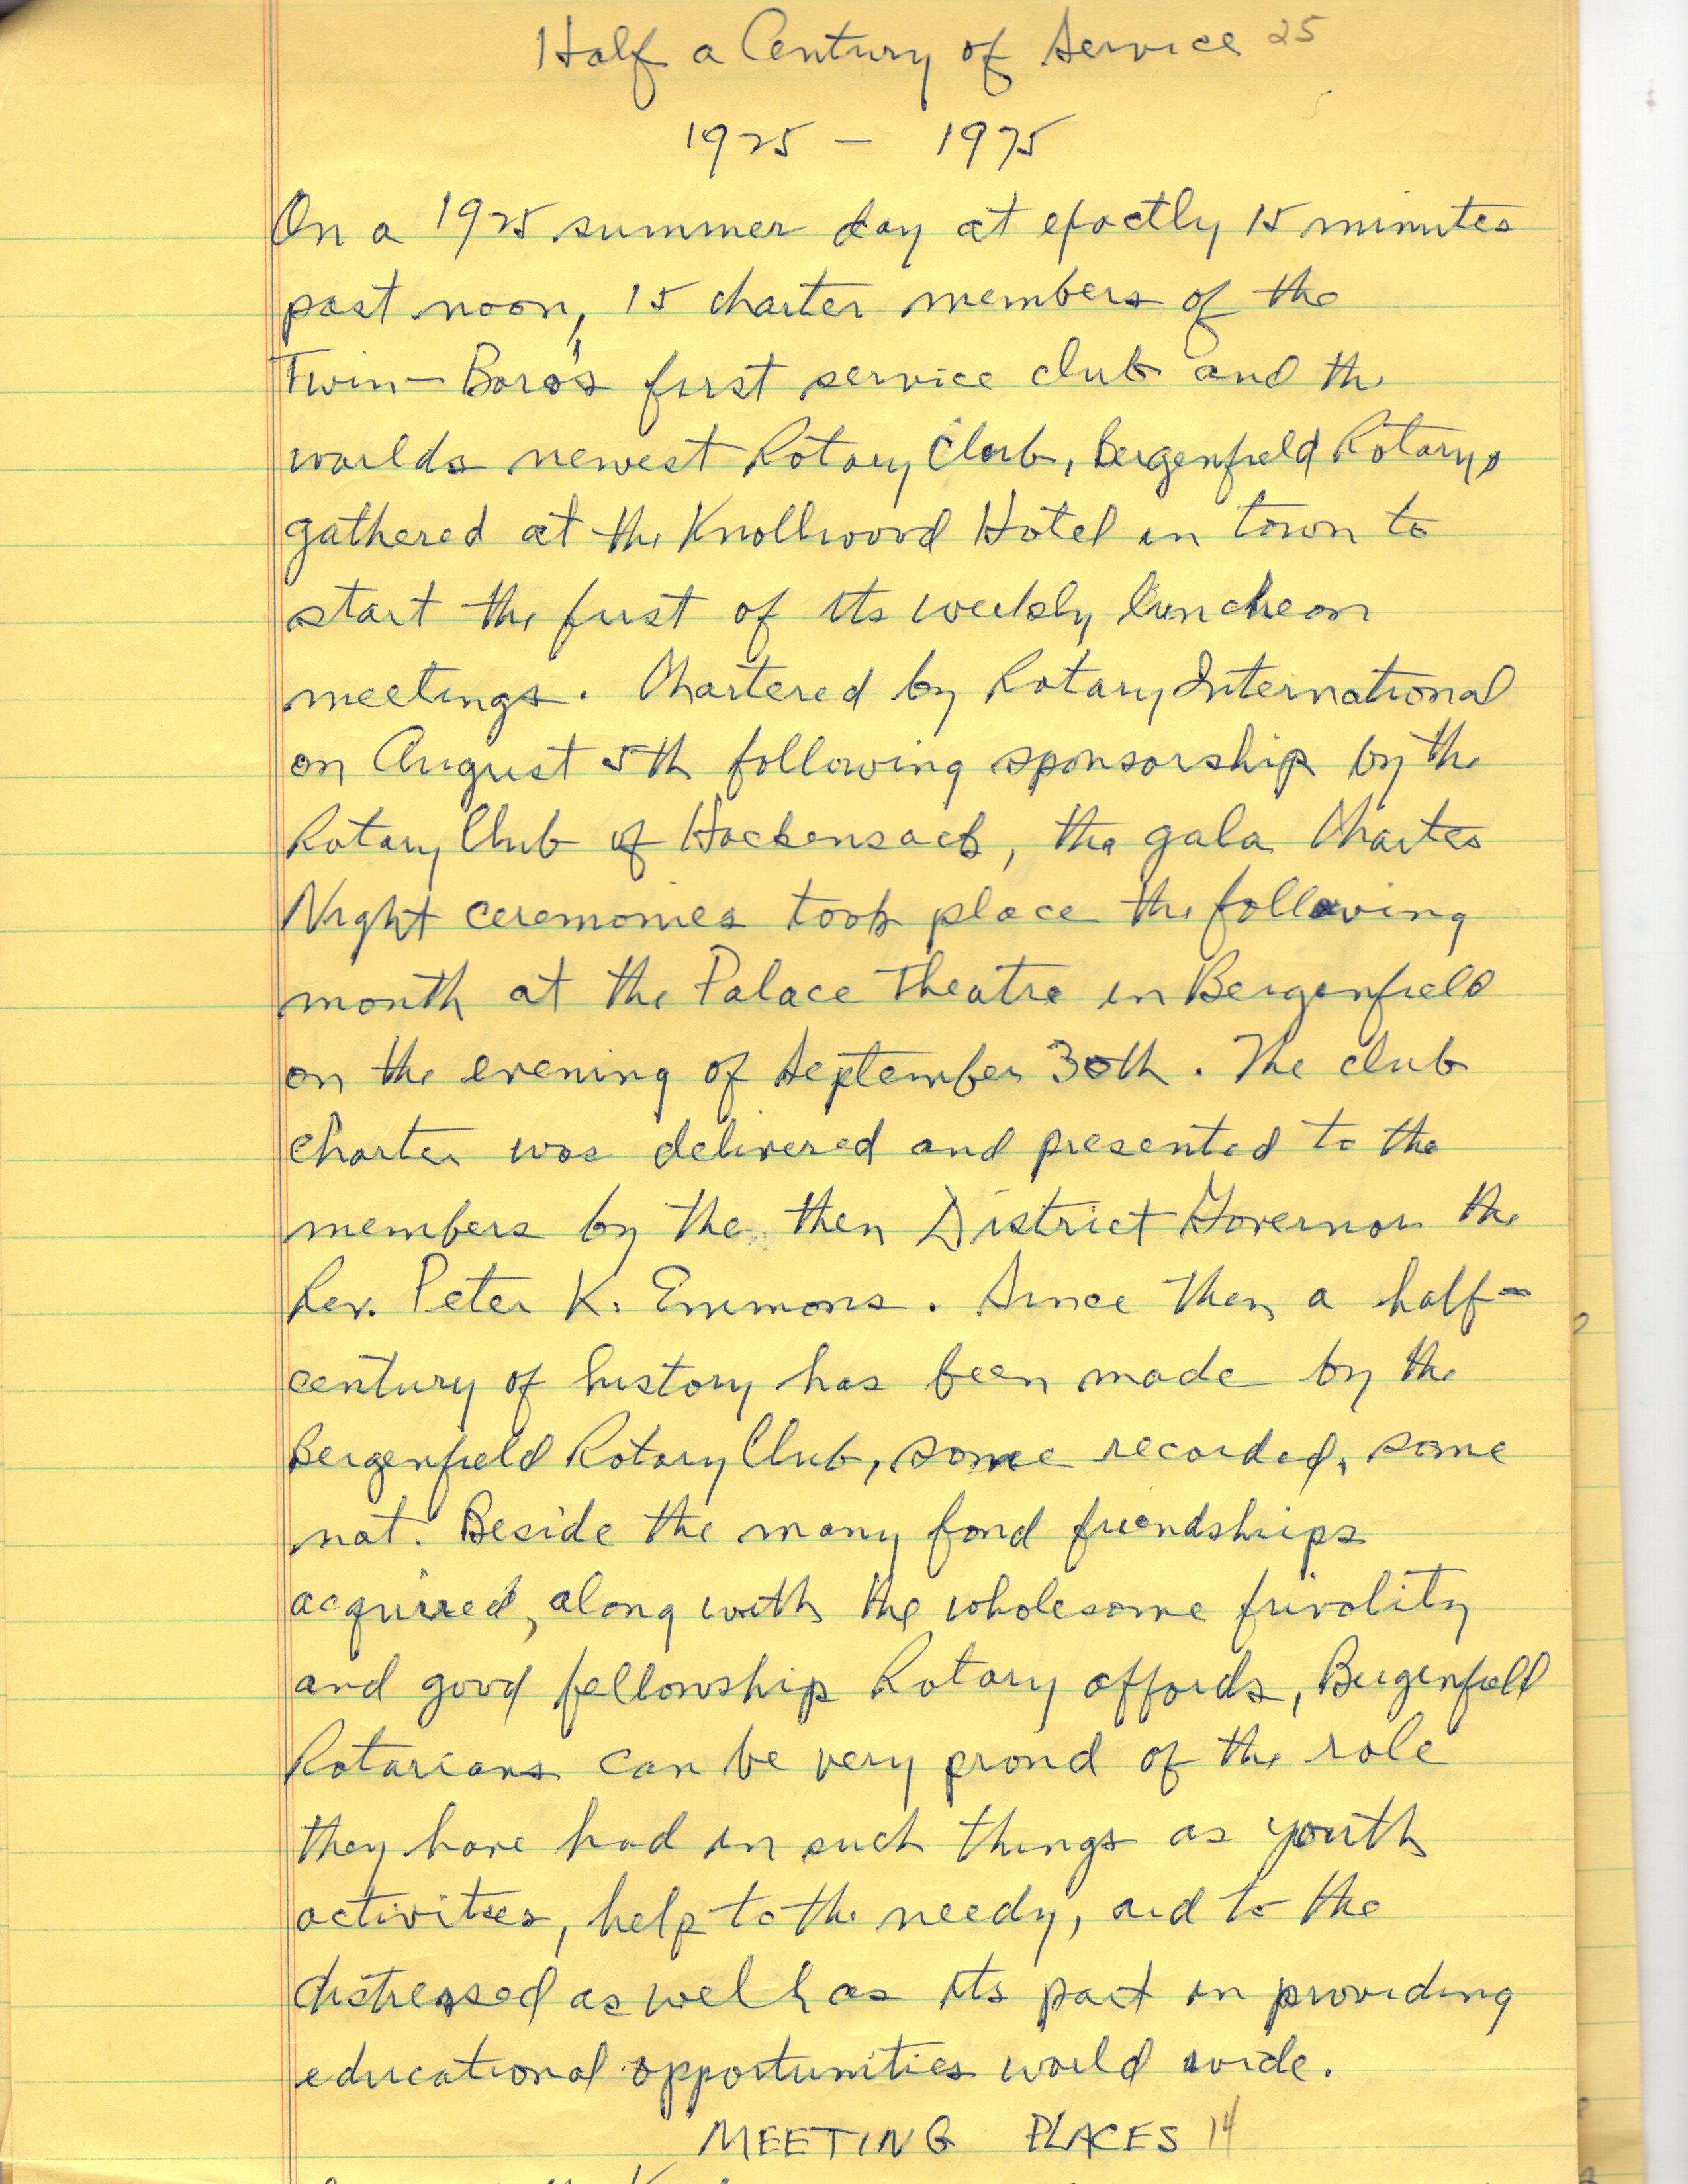 Half a Century of Service 25
1925 - 1975
On a 1925 summer day at exactly 15 minutes
past noon, 15 charter members of the
Twin-Boro's first service club and the
worlds newest Rotary Club, Bergenfield Rotary,
gathered at the Knollwood Hotel in town to
start the first of its weekly luncheon
meetings. Chartered by Rotary International
on August 5th following sponsorship by the
Rotary Club of Hackensack, the gala Charter
Night ceremonies took place the following
month at the Palace Theatre in Bergenfield
on the evening of September 30th. The club
charter was delivered and presented to the
members by the then District Governor the
Rev. Peter K. Emmons. Since then a half-
century of history has been made by the
Bergenfield Rotary Club, some recorded, some
not. Beside the many fond friendships
acquired, along with the wholesome frivolity
and good fellowship Rotary affords, Bergenfield
Rotarians can be very proud of the role
they have had in such things as youth
activities, help to the needy, aid to the
distressed as well as its part in providing
educational opportunities world wide.
MEETING PLACES 14